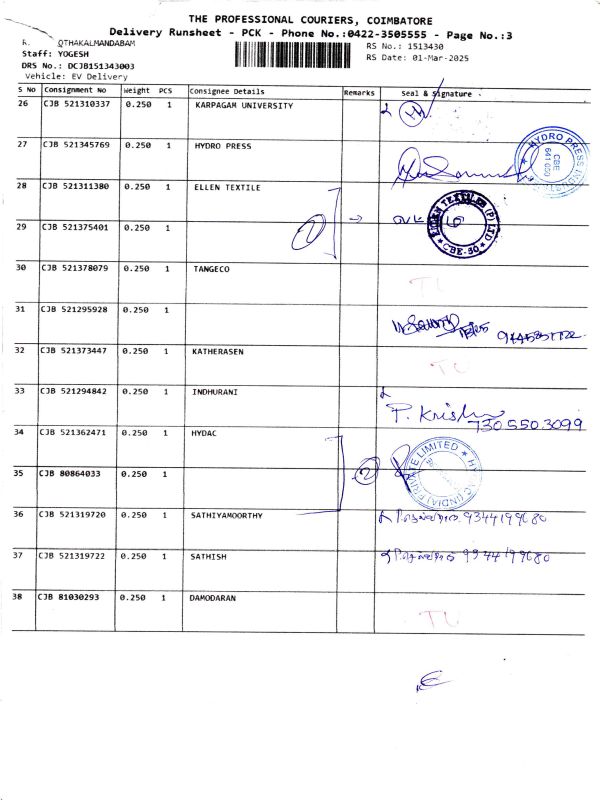 THE PROFESSIONAL COURIERS, COIMBATORE
Delivery Runsheet - PCK - Phone No.:0422-3505555 - Page No.:3
R. OTHAKALMANDABAM
RS No.: 1513430
Staff: YOGESH
RS Date: 01-Mar-2025
DRS No.: DCJB151343003
Vehicle: EV Delivery
S No Consignment No Weight PCS Consignee Details Remarks Seal & Signature
26 CJB 521310337 0.250 1 KARPAGAM UNIVERSITY
27 CJB 521345769 0.250 1 HYDRO PRESS
HYDRO PRESS
CBE
641 050
28 CJB 521311380 0.250 1 ELLEN TEXTILE
2
TEXTILES (P) LTD
* CBE-50 *
29 CJB 521375401 0.250 1
30 CJB 521378079 0.250 1 TANGECO
TU
31 CJB 521295928 0.250 1
32 CJB 521373447 0.250 1 KATHERASEN
TU
33 CJB 521294842 0.250 1 INDHURANI
P. Krish
730 550 3099
34 CJB 521362471 0.250 1 HYDAC
2
HYDAC (INDIA) PRIVATE LIMITED *
35 CJB 80864033 0.250 1
36 CJB 521319720 0.250 1 SATHIYAMOORTHY
9344199680
37 CJB 521319722 0.250 1 SATHISH
9344199680
38 CJB 81030293 0.250 1 DAMODARAN
TU